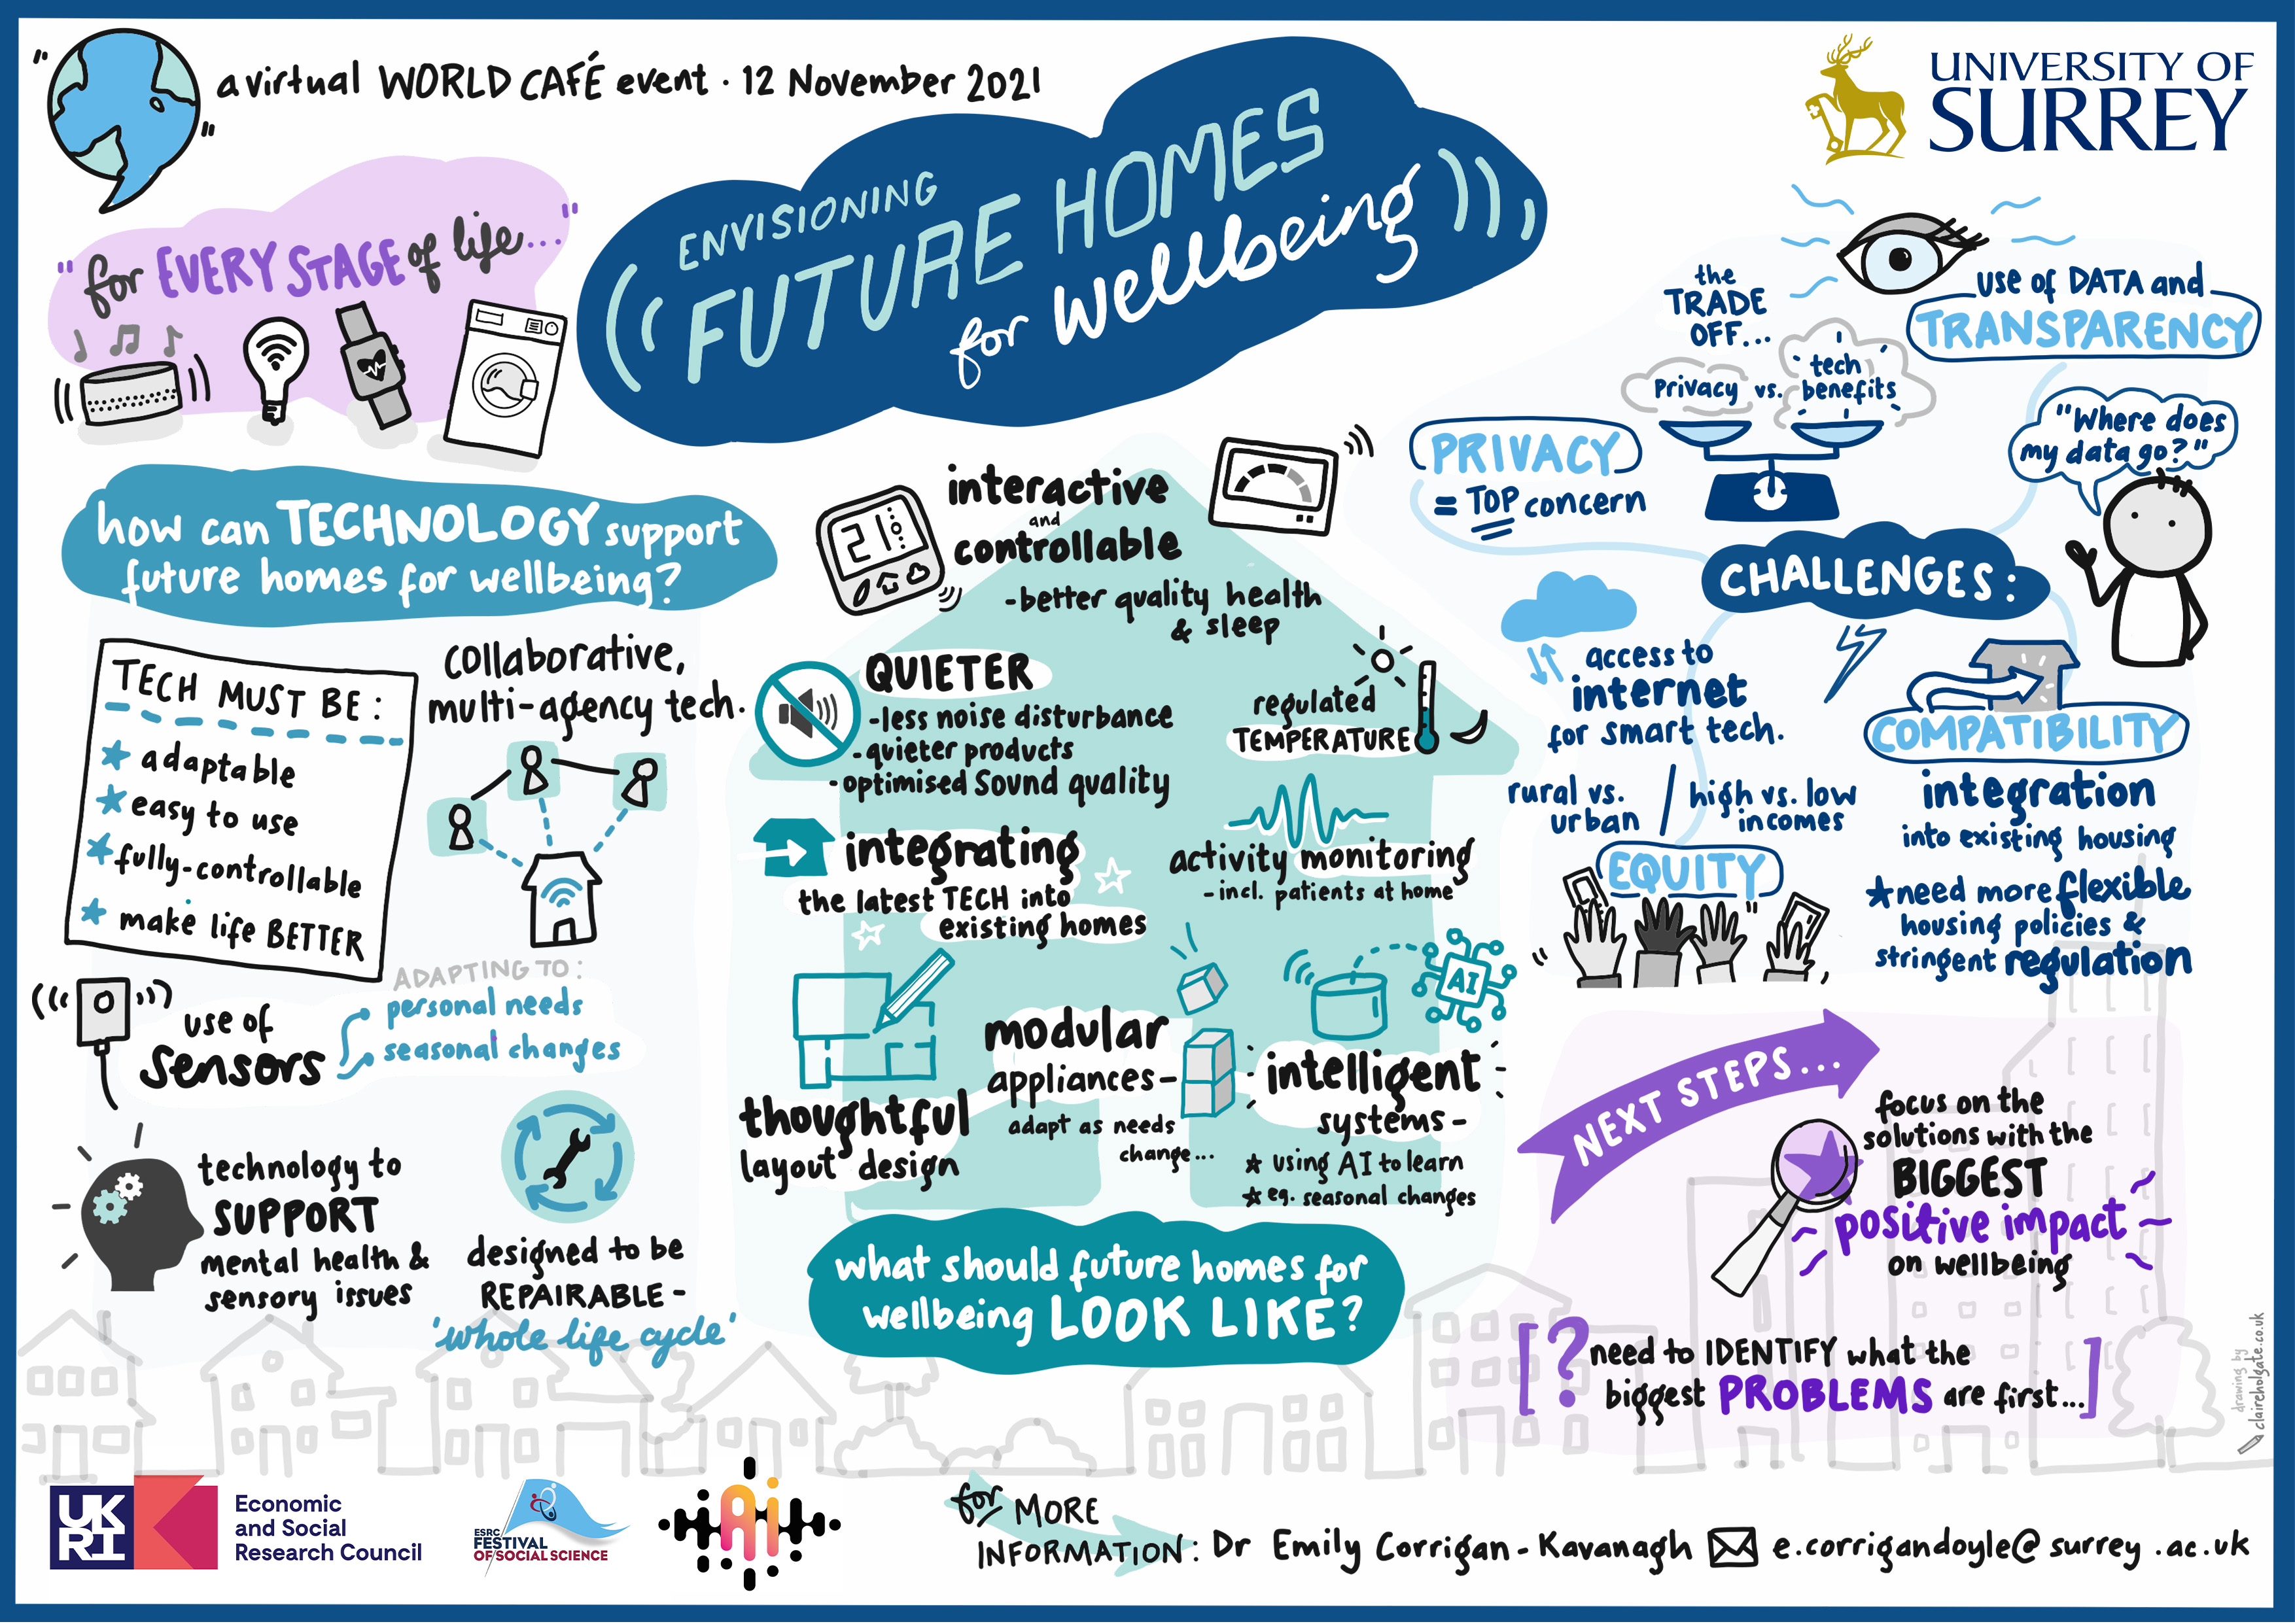 a virtual WORLD CAFÉ event · 12 November 2021
UNIVERSITY OF
SURREY
ENVISIONING
FUTURE HOMES
for wellbeing
"for EVERY STAGE of life..."
how can TECHNOLOGY support
future homes for wellbeing?
TECH MUST BE:
adaptable
easy to use
fully-controllable
make life BETTER
collaborative,
multi-agency tech.
use of
sensors
ADAPTING TO:
personal needs
seasonal changes
technology to
SUPPORT
mental health &
sensory issues
designed to be
REPAIRABLE -
'whole life cycle'
21
interactive
and
controllable
-better quality health
& sleep
QUIETER
-less noise disturbance
-quieter products
-optimised sound quality
regulated
TEMPERATURE
integrating
the latest TECH into
existing homes
activity monitoring
- incl. patients at home
thoughtful
layout design
modular
appliances-
adapt as needs
change...
AI
intelligent
systems-
★ using AI to learn
★ eg. seasonal changes
what should future homes for
wellbeing LOOK LIKE?
the
TRADE
OFF...
privacy vs. tech
benefits
use of DATA and
TRANSPARENCY
"Where does
my data go?"
PRIVACY
= TOP concern
CHALLENGES:
access to
internet
for smart tech.
rural vs.
urban / high vs. low
incomes
EQUITY
COMPATIBILITY
integration
into existing housing
★need more flexible
housing policies &
stringent regulation
NEXT STEPS...
focus on the
solutions with the
BIGGEST
positive impact
on wellbeing
[? need to IDENTIFY what the
biggest PROBLEMS are first...]
drawing by
claireholgate.co.uk
UK
RI
Economic
and Social
Research Council
ESRC
FESTIVAL
OF SOCIAL SCIENCE
Ai
for MORE
INFORMATION: Dr Emily Corrigan-Kavanagh e.corrigandoyle@surrey.ac.uk